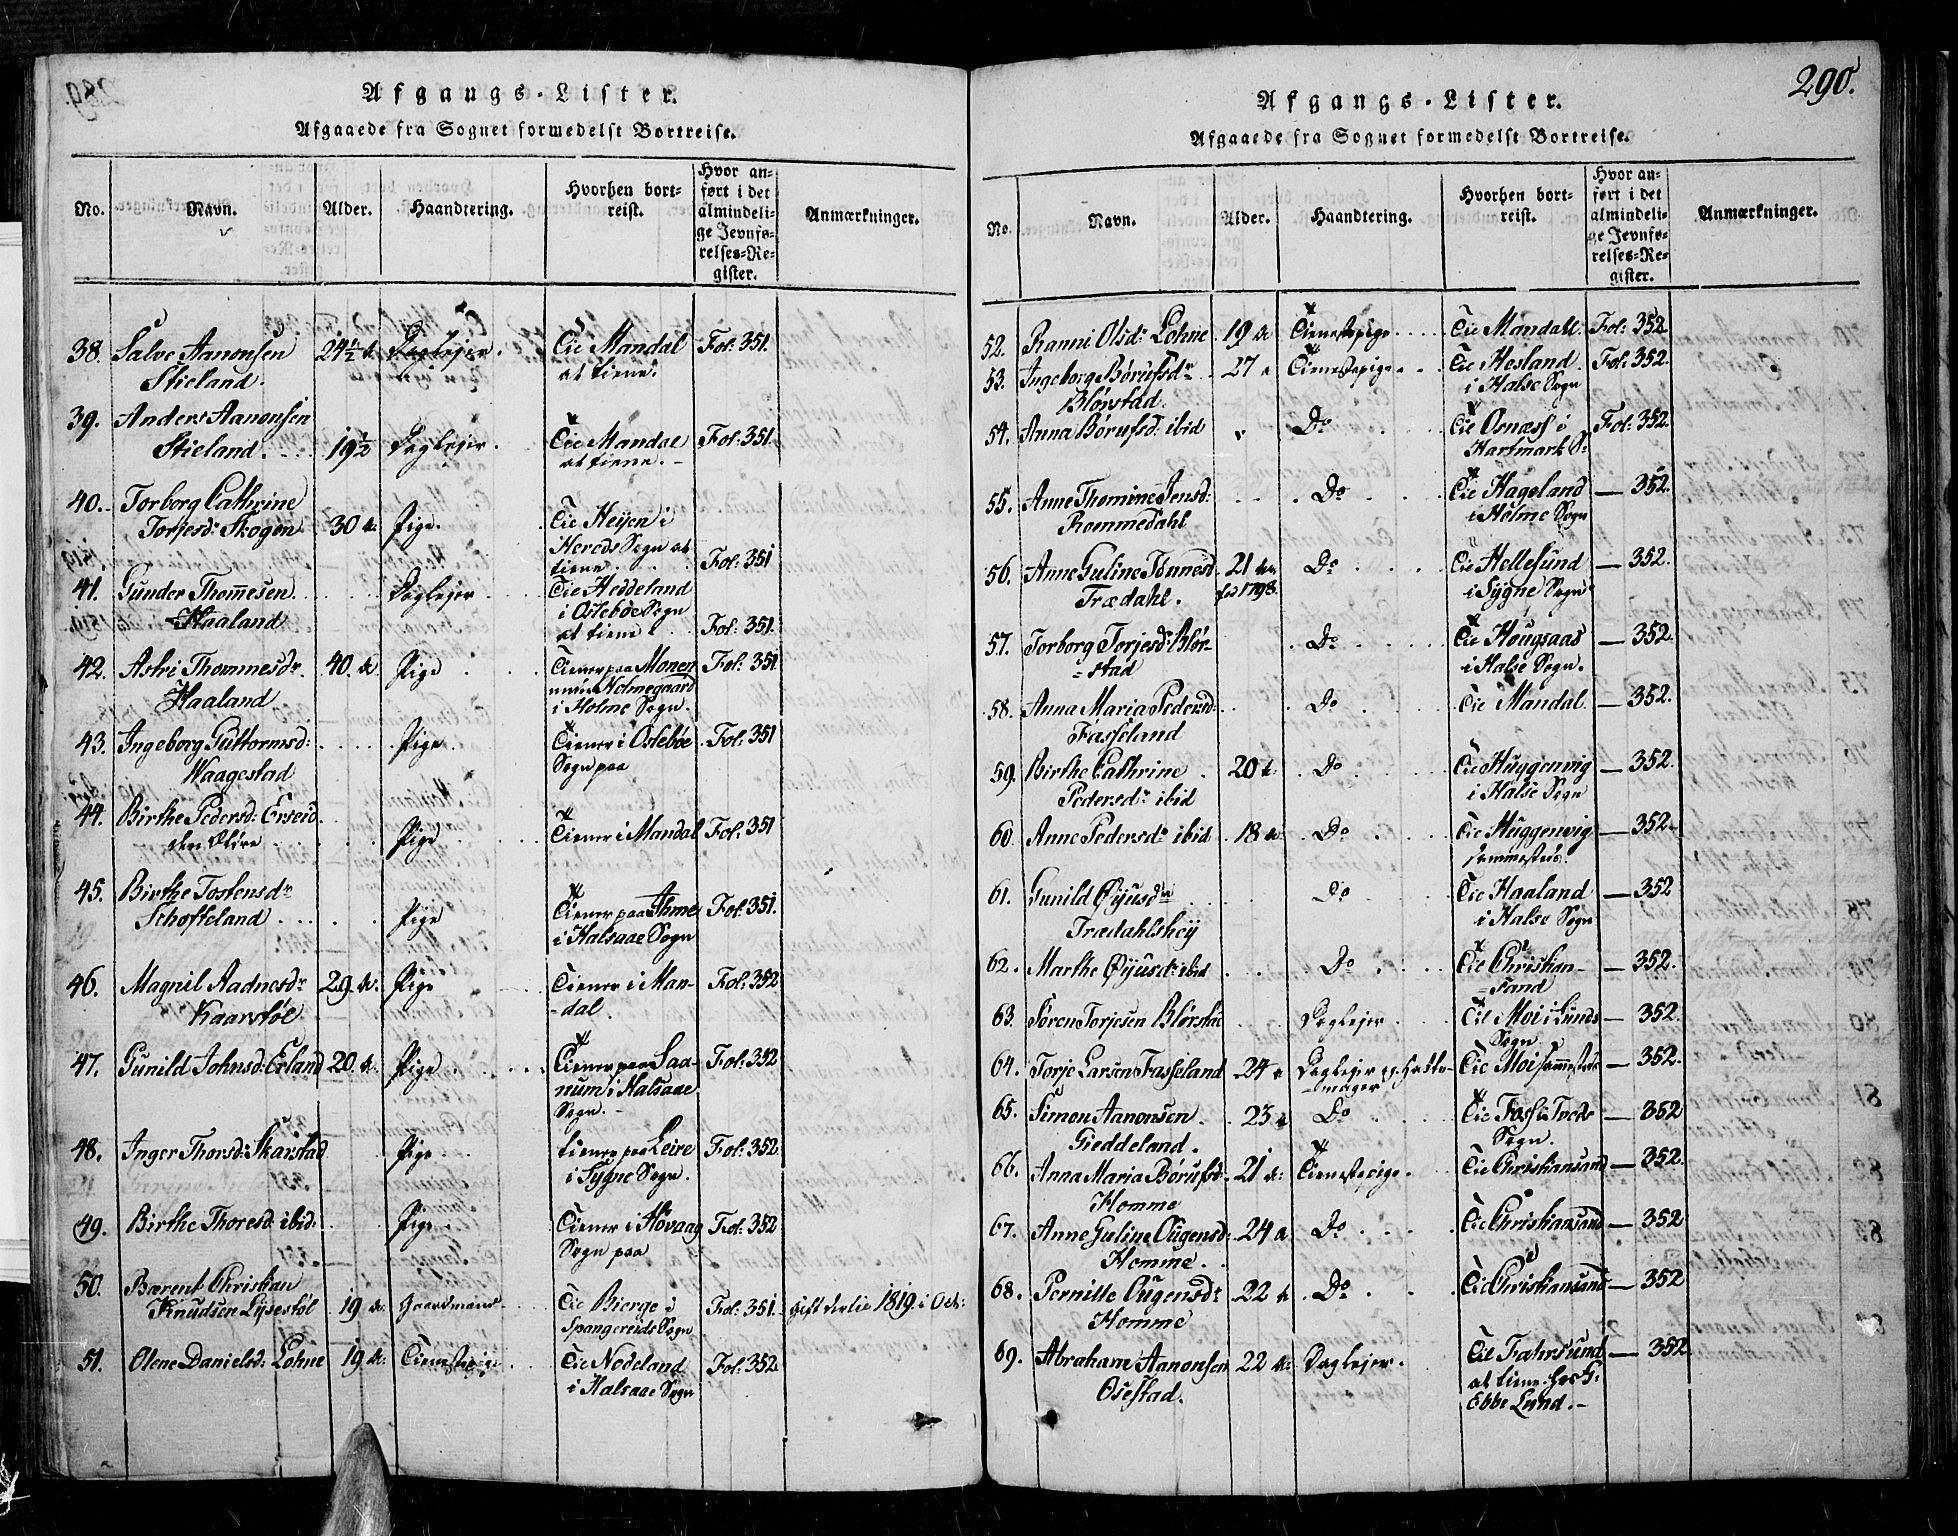 Afgangs-Lister.
Afgaaede fra Sognet formedelst Bortreise.
No. Navn. Alder. Haandtering. Hvorhen bortreist. Hvor anført i det almindelige Jevnførelses-Register. Anmærkninger.
38. Salve Aanonsen 24½ A. Daglejer. Til Mandal Fol: 351.
Stieland. at tiene.
39. Anders Aanonsen
Stieland. 19½ Daglejer. Til Mandal Fol: 351.
at tiene.
40. Torborg Cathrine
Torjesd: Skogen 30 A. Pige. Til Heyen i
Hereds Sogn at
tiene. Fol: 351
41. Gunder Thom̅esen Daglejer Til Heddeland
Haaland i Oslebøe Sogn
at tiene. Fol: 351.
42. Astri Thommesdr. 40. A. Pige Tiener paa Monen Fol: 351
Haaland Holmegaard
i Holme Sogn.
43. Ingeborg Guttormsd: Pige Tiener i Oslebøe Fol: 351
Waagestad Sogn paa
44. Birthe Pedersd: Erseid
den Eldre Pige Tiener i Mandal Fol: 351
45. Birthe Tostensdr
Schofteland Pige Tiener paa Ahme Fol: 351.
i Halsaae Sogn
46. Magnil Aadnesdr 29. A. Pige Tiener i Man- Fol: 352
Kaarstøl -dal.
47. Gunild Johnsd: Erland 20. A. Pige Tiener paa Saa- Fol: 352
num i Halsaae
Sogn.
48. Inger Thorsd: Skarstad Pige tiener paa Leire Fol: 352
i Sygne Sogn.
49. Birthe Thoresd: ibid: Pige Tiener i Hovaag Fol: 352
Sogn paa
50. Barent Christian
Knudsen Lysestøl 19 A. Gaardmand Til Bierge i Fol: 351. gift derlie 1819. i Oct:
Spangereids Sogn
51. Olene Danielsd: Lohne 19 A. Tienestepige Til Nodeland Fol: 352.
i Halsaae Sogn
290.
Afgangs-Lister.
Afgaaede fra Sognet formedelst Bortreise.
No. Navn. Alder. Haandtering. Hvorhen bortreist. Hvor anført i det almindelige Jevnførelses-Register. Anmærkninger.
52. Ranni Olsd: Lohne 19 A. Tienestepige Til Mandahl. Fol: 352
53. Ingeborg Børufsdr 27 " Tienestepige Til Hesland Fol: 352.
Blørstad. i Halse Sogn
54. Anna Børufsd: ibid " Do Til Osnæss i Fol: 352.
Hartmark S:
55. Anne Thomine Jensd: Do Til Hageland — 352.
Rommedahl i Holme Sogn
56. Anne Guline Tønnesd 21 A. Do Til Hellesund — 352.
Trædahl. fød 1798. i Sygne Sogn
57. Torborg Torjesd: Blør- Do Til Hougsaas — 352.
=stad i Halse Sogn.
58. Anna Maria Pedersd: Do Til Mandal. — 352.
Fasseland
59. Birthe Cathrine 20 A: Do Til Huggenvig — 352.
Pedersdr ibid i Halse Sogn
60. Anne Pedersdr ibid 18 A. Do Til Huggenvig — 352.
sammesteds.
61. Gunild Øyusdr Do Til Haaland — 352
Trædahlshey i Halse Sogn
62. Marthe Øyusdr ibid Do Til Christian- — 352.
=sand
63. Søren Torjesen Blørstad Daglejer Til Moi i Lunds — 352.
Sogn
64. Torje Larsen Fasseland 24 " Daglejer og Hatte- Til Moi sammesteds — 352.
mager
65. Simon Aanonsen 23 A Do Til — 352
Gieddeland. Sogn.
66. Anna Maria Børufsd: 21 A: Tienestepige. Til Christiansand — 352.
Homme
67. Anne Guline Ougensd: 24 A Do Til Christiansand — 352
Homme.
68. Pernille Ougensdr 22 A Do Til Christiansand — 352
Homme
69. Abraham Aanonsen 22 A: Daglejer. Til Fahrsund — 352
Osestad. at tiene hos H:
Ebbe Lund.